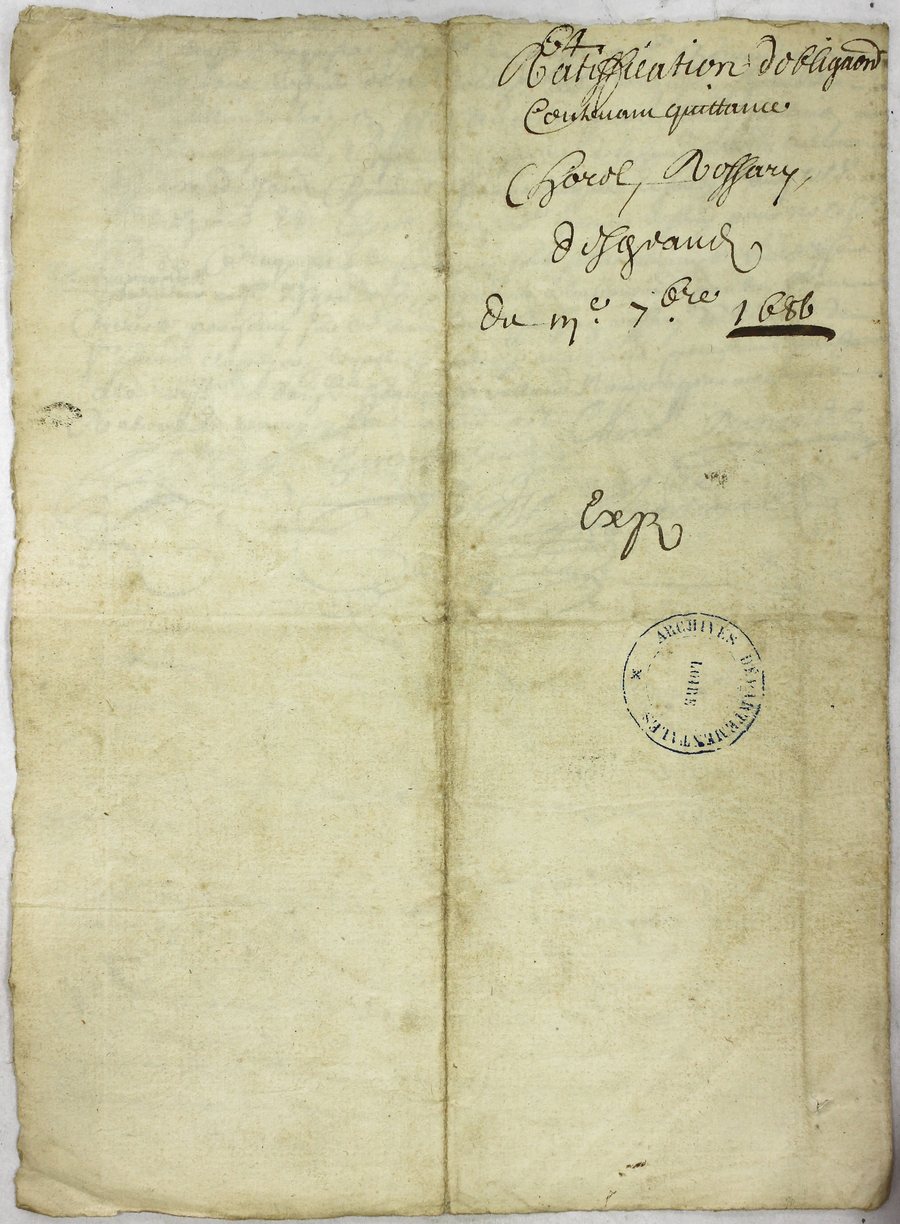 64
Ratiffication dobligaon
Contenant quittance
Chorel, Rossary,
desgrand
du m.e 7.bre 1686
Exp
ARCHIVES DÉPARTEMENTALES
LOIRE